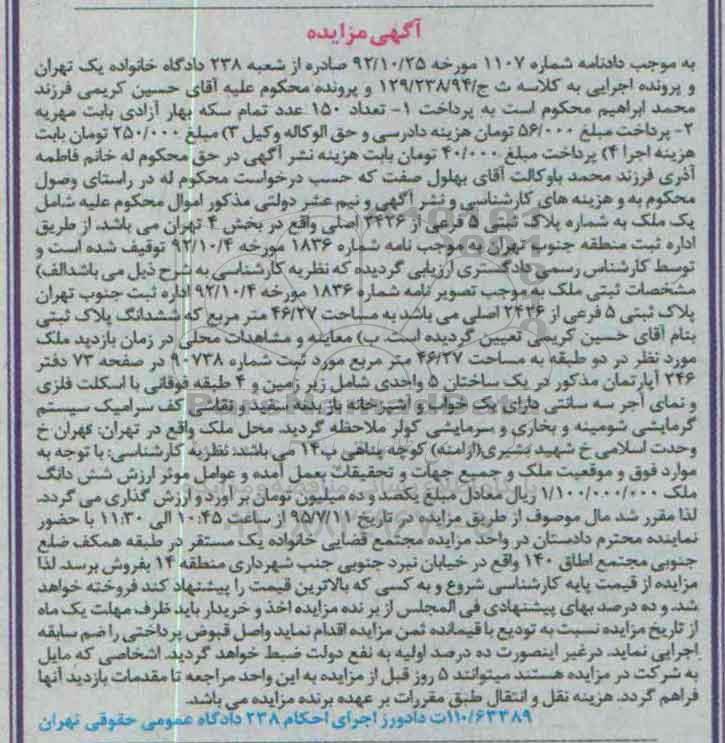 آگهی مزایده
به موجب دادنامه شماره ۱۱۰۷ مورخه ۹۲/۱۰/۲۵ صادره از شعبه ۲۳۸ دادگاه خانواده یک تهران
و پرونده اجرایی به کلاسه ث ج/۱۲۹/۲۳۸/۹۴ و پرونده محکوم علیه آقای حسین کریمی فرزند
محمد ابراهیم محکوم است به پرداخت ۱- تعداد ۱۵۰ عدد تمام سکه بهار آزادی بابت مهریه
۲- پرداخت مبلغ ۵۶/۰۰۰ تومان هزینه دادرسی و حق الوکاله وکیل ۳) مبلغ ۲۵۰/۰۰۰ تومان بابت
هزینه اجرا ۴) پرداخت مبلغ ۴۰/۰۰۰ تومان بابت هزینه نشر آگهی در حق محکوم له خانم فاطمه
آذری فرزند محمد باوکالت آقای بهلول صفت که حسب درخواست محکوم له در راستای وصول
محکوم به و هزینه های کارشناسی و نشر آگهی و نیم عشر دولتی مذکور اموال محکوم علیه شامل
یک ملک به شماره پلاک ثبتی ۵ فرعی از ۲۴۲۶ اصلی واقع در بخش ۴ تهران می باشد. از طریق
اداره ثبت منطقه جنوب تهران به موجب نامه شماره ۱۸۳۶ مورخه ۹۲/۱۰/۴ توقیف شده است و
توسط کارشناس رسمی دادگستری ارزیابی گردیده که نظریه کارشناسی به شرح ذیل می باشدالف)
مشخصات ثبتی ملک به موجب تصویر نامه شماره ۱۸۳۶ مورخه ۹۲/۱۰/۴ اداره ثبت جنوب تهران
پلاک ثبتی ۵ فرعی از ۲۴۲۶ اصلی می باشد به مساحت ۴۶/۲۷ متر مربع که ششدانگ پلاک ثبتی
بنام آقای حسین کریمی تعیین گردیده است. ب) معاینه و مشاهدات محلی در زمان بازدید ملک
مورد نظر در دو طبقه به مساحت ۴۶/۲۷ متر مربع مورد ثبت شماره ۹۰۷۳۸ در صفحه ۷۳ دفتر
۲۴۶ آپارتمان مذکور در یک ساختان ۵ واحدی شامل زیر زمین و ۴ طبقه فوقانی با اسکلت فلزی
و نمای آجر سه سانتی دارای یک خواب و آشپزخانه باز بدنه سفید و نقاشی کف سرامیک سیستم
گرمایشی شومینه و بخاری و سرمایشی کولر ملاحظه گردید. محل ملک واقع در تهران: تهران خ
وحدت اسلامی خ شهید بشیری(ارامنه) کوچه پناهی پ۱۴ می باشد: نظریه کارشناسی: با توجه به
موارد فوق و موقعیت ملک و جمیع جهات و تحقیقات بعمل آمده و عوامل موثر ارزش شش دانگ
ملک ۱/۱۰۰/۰۰۰/۰۰۰ ریال معادل مبلغ یکصد و ده میلیون تومان بر آورد و ارزش گذاری می گردد.
لذا مقرر شد مال موصوف از طریق مزایده در تاریخ ۹۵/۷/۱۱ از ساعت ۱۰:۴۵ الی ۱۱:۳۰ با حضور
نماینده محترم دادستان در واحد مزایده مجتمع قضایی خانواده یک مستقر در طبقه همکف ضلع
جنوبی مجتمع اطاق ۱۴۰ واقع در خیابان نبرد جنوبی جنب شهرداری منطقه ۱۴ بفروش برسد. لذا
مزایده از قیمت پایه کارشناسی شروع و به کسی که بالاترین قیمت را پیشنهاد کند فروخته خواهد
شد. و ده درصد بهای پیشنهادی فی المجلس از بر نده مزایده اخذ و خریدار باید ظرف مهلت یک ماه
از تاریخ مزایده نسبت به تودیع با قیمانده ثمن مزایده اقدام نماید واصل قبوض پرداختی را ضم سابقه
اجرایی نماید. درغیر اینصورت ده درصد اولیه به نفع دولت ضبط خواهد گردید. اشخاصی که مایل
به شرکت در مزایده هستند میتوانند ۵ روز قبل از مزایده به این واحد مراجعه تا مقدمات بازدید آنها
فراهم گردد. هزینه نقل و انتقال طبق مقررات بر عهده برنده مزایده می باشد.
۱۱۰/۶۳۳۸۹ت دادورز اجرای احکام ۲۳۸ دادگاه عمومی حقوقی تهران